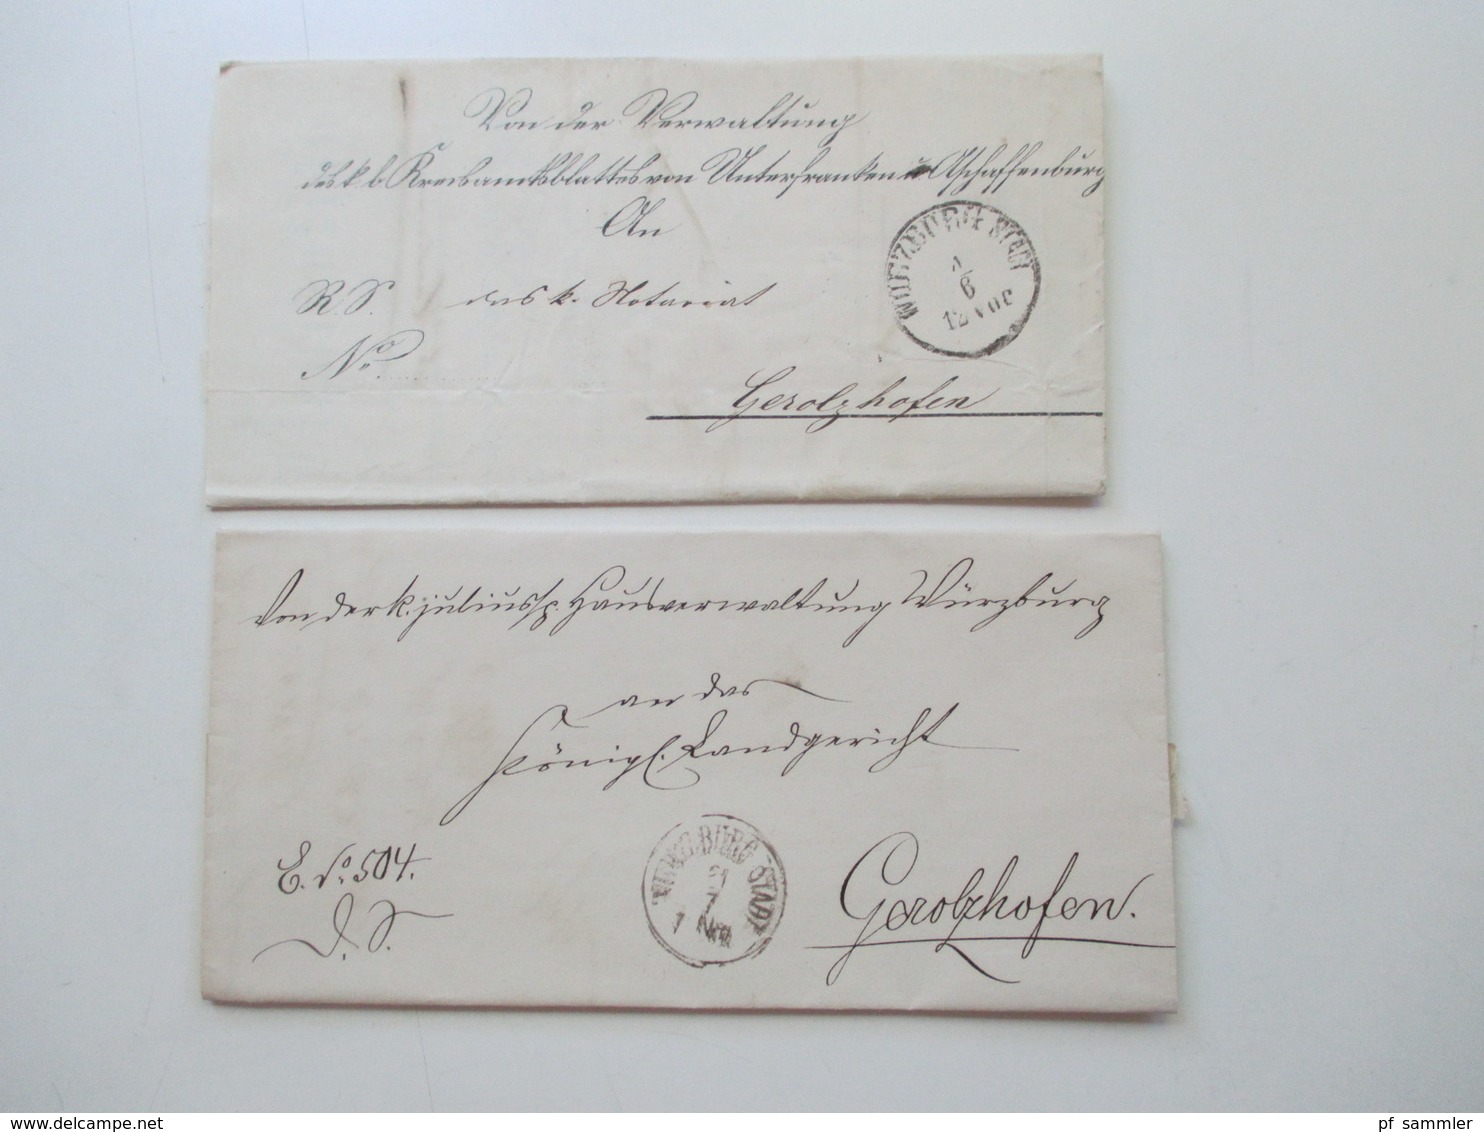 Von der Verwaltung
des k. b. Kreisamtsblattes von Unterfranken u. Aschaffenburg
An
R. S. das k. Notariat
No.
WÜRZBURG STADT
1/6
12 VOR
Gerolzhofen
Von der k. juliussp. Hausverwaltung Würzburg
an das
Königl. Landgericht
E. No. 504.
D. S.
WÜRZBURG STADT
21
7
1 NM
Gerolzhofen.
delcampe.net
pf_sammler